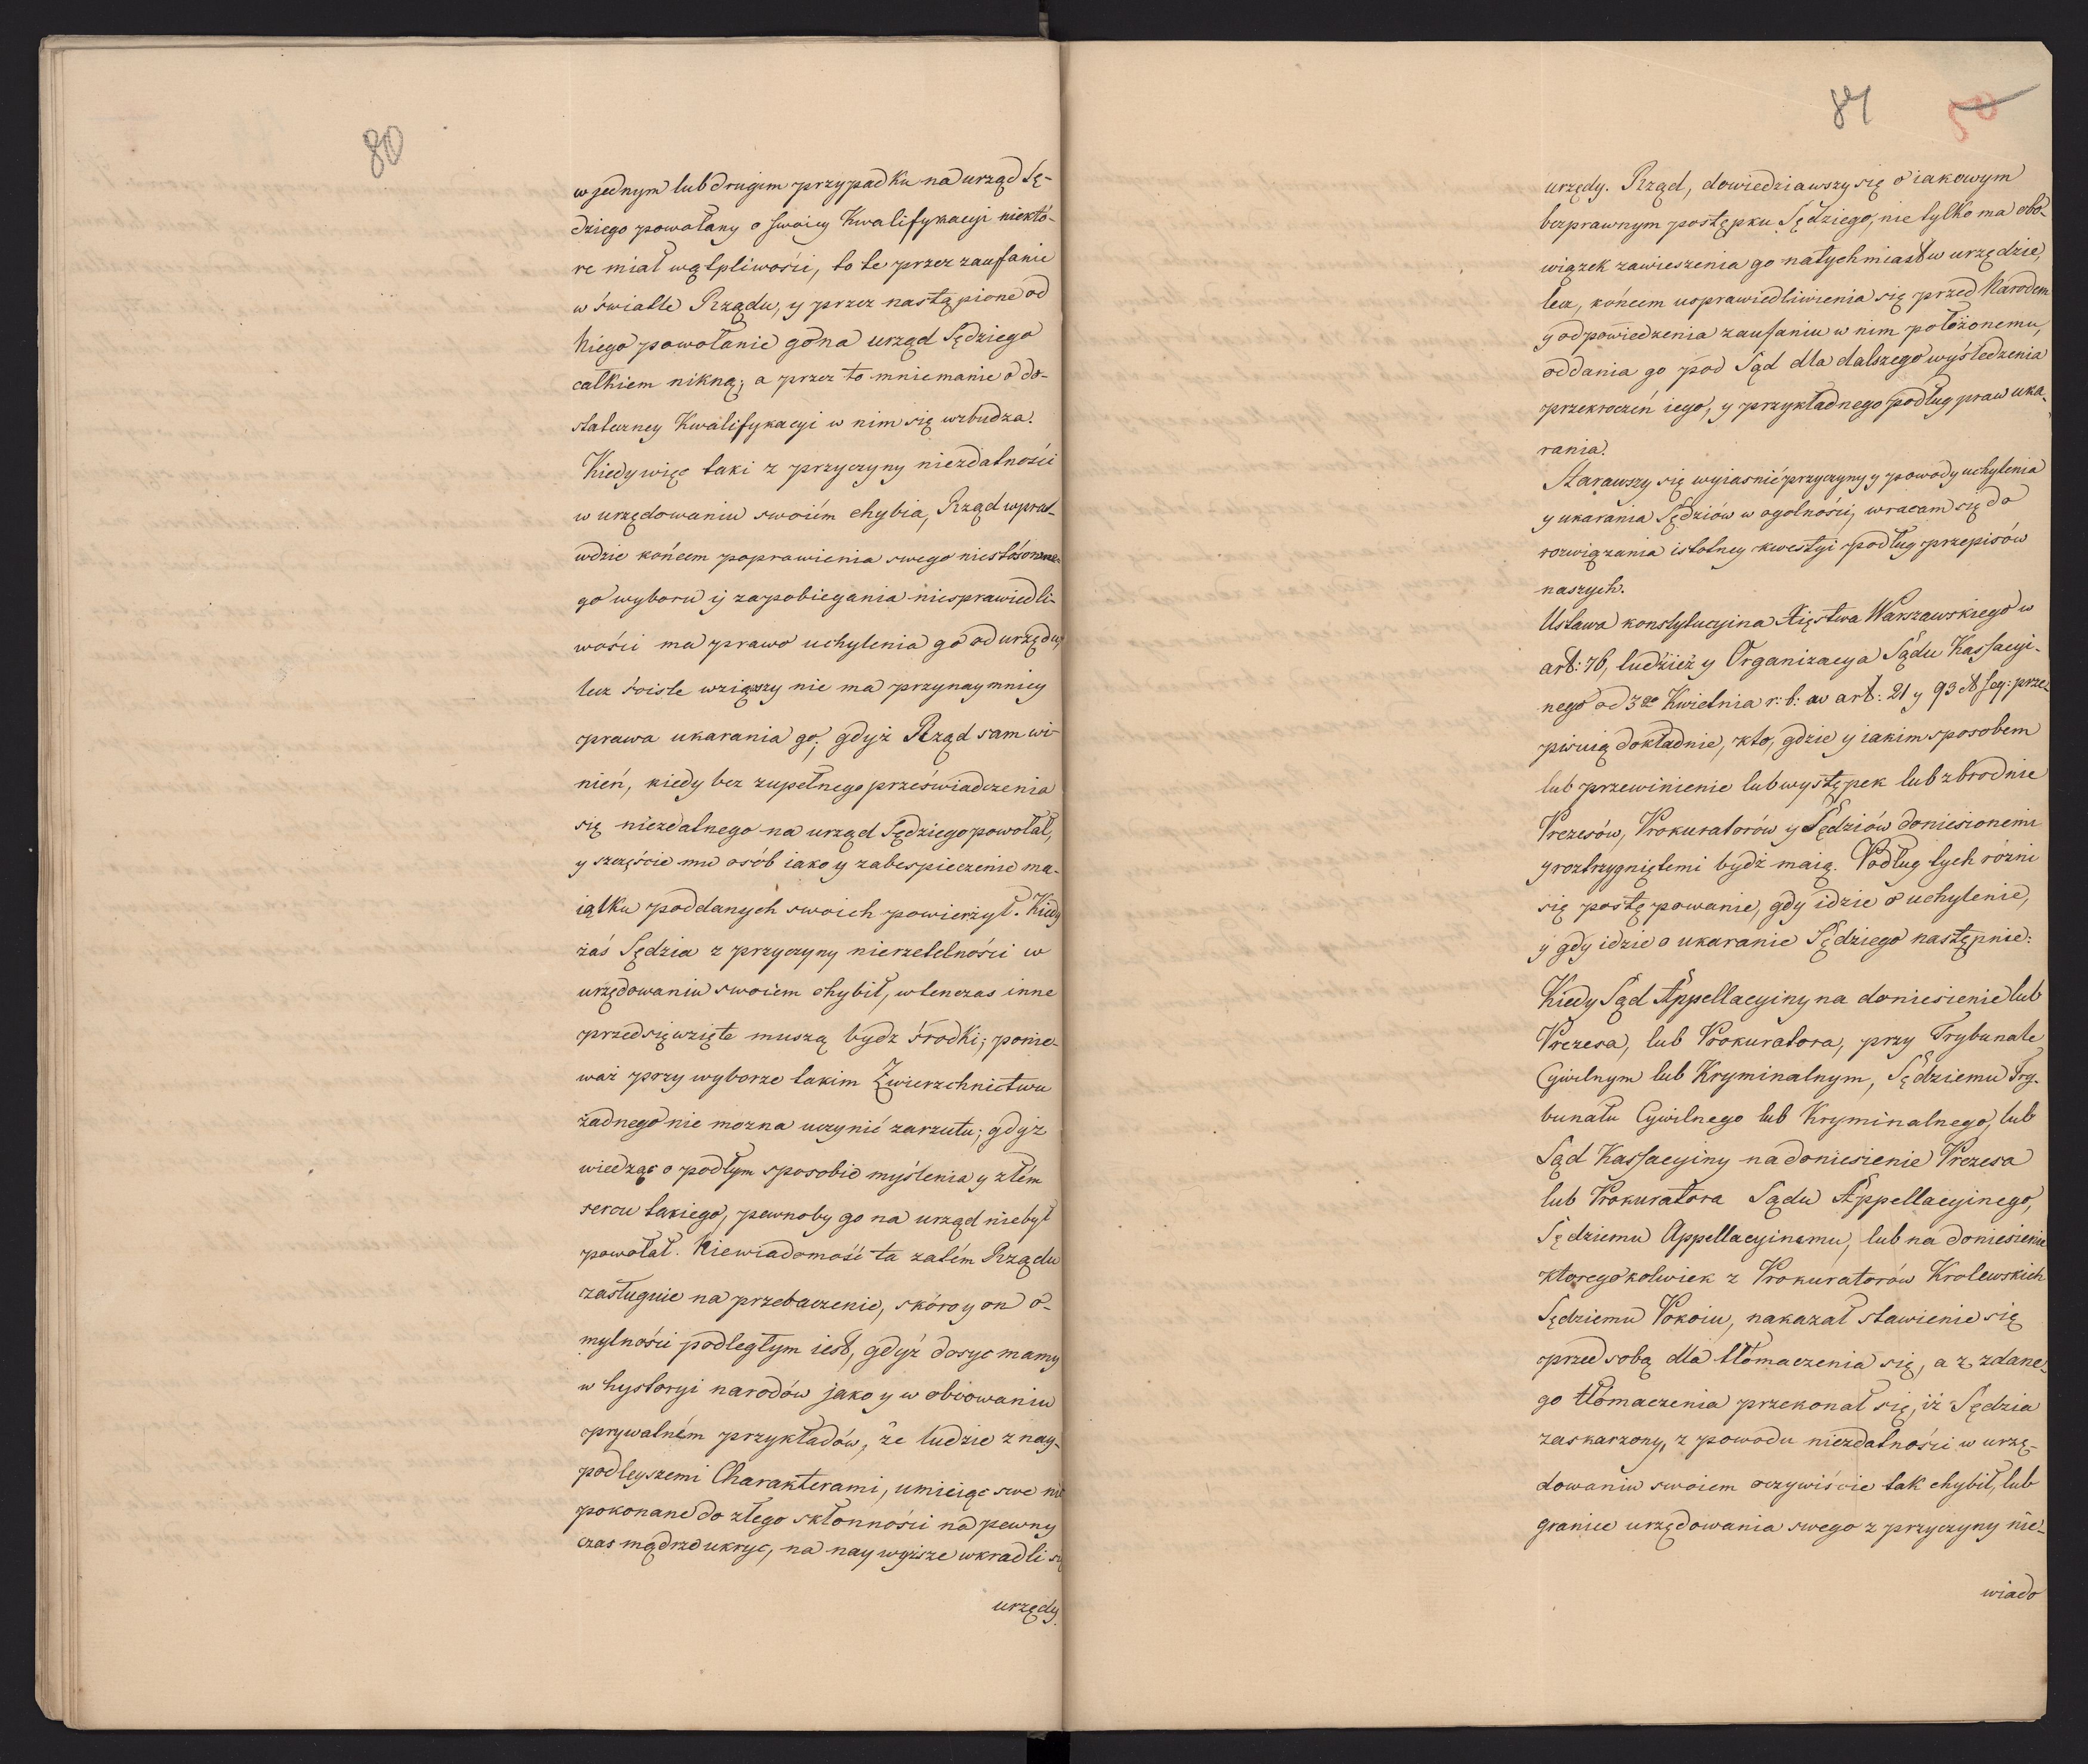 80
w jednym lub drugim przypadku na urząd Sę-
dziego powołany o swoiey Kwalifykacyi niektó-
re miał wątpliwości, to te przez zaufanie
w świetle Rządu, y przez nastąpione od
Niego powołanie go na urząd Sędziego
całkiem nikną; a przez to mniemanie o do-
stateczney Kwalifykacyi w nim się wzbudza.
Kiedy więc taki z przyczyny niezdatności
w urzędowaniu swoiém chybia, Rząd wpra-
wdzie końcem poprawienia swego niestósowne-
go wyboru ÿ zapobiegania niesprawiedli-
wości ma prawo uchylenia go od urzędu,
lecz ściśle wziąwszy nie ma przynaymniey
prawa ukarania go; gdyż Rząd sam wi-
nień, kiedy bez zupełnego przeświadczenia
się niezdatnego na urząd Sędziego powołał,
y szczęście mu osób iako y zabespieczenie ma-
iątku poddanych swoich powierzył. Kiedy
zaś Sędzia z przyczyny nierzetelności w
urzędowaniu swoiem chybił, wtenczas inne
przedsięwzięte muszą bydz środki; ponie-
waż przy wyborze takim Zwierzchnictwu
żadnego nie mozna uczynić zarzutu; gdyż
wiedząc o podłym sposobie myślenia y złém
sercu takiego, pewnoby go na urząd niebył
powołał. Niewiadomość ta zatém Rządu
zasługuie na przebaczenie, skóro y on o-
mylności podległym iest, gdyż dosyc mamy
w hystoryi narodów jako y w obcowaniu
prywatném przykładów, że ludzie z nay-
podleyszemi Charakterami, umieiąc swe nie
pokonane do złego skłonności na pewny
czas mądrze ukryc, na naywyższe wkradli się
urzędy.
81 50
urzędy. Rząd, dowiedziawszy się o iakowym
bezprawnym postępku Sędziego, nie tylko ma obo-
wiązek zawieszenia go natychmiast w urzędzie,
lecz, końcem usprawiedliwienia się przed Narodem
y odpowiedzenia zaufaniu w nim położonemu,
oddania go pod Sąd dla dalszego wyśledzenia
przekroczeń iego, y przykładnego podług praw uka-
rania.
Starawszy się wyiasnić przyczyny y powody uchylenia
y ukarania Sędziów w ogolności, wracam się do
rozwiązania istotney kwestyi podług przepisów
naszych.
Ustawa konstytucyina Xięstwa Warszawskiego w
art: 76, tudzież y Organizacya Sądu Kassacyi-
nego od 3go Kwietnia r: b: w art: 21 y 93 et seq: prze-
pisuią dokładnie, kto, gdzie y iakim sposobem
lub przewinienie lub występek lub zbrodnie
Prezesów, Prokuratorów y Sędziów doniesionemi
y roztrzygniętemi bydź maią. Podług tych rózni
się postępowanie, gdy idzie o uchylenie,
y gdy idzie o ukaranie Sędziego następnie:
Kiedy Sąd Appellacyiny na doniesienie lub
Prezesa, lub Prokuratora, przy Trybunale
Cywilnym lub Kryminalnym, Sędziemu Try-
bunału Cywilnego lub Kryminalnego, lub
Sąd Kassacyiny na doniesienie Prezesa
lub Prokuratora Sądu Appellacyinego,
Sędziemu Appellacyinemu, lub na doniesienie
ktoregokolwiek z Prokuratorów Krolewskich
Sędziemu Pokoiu, nakazał stawienie się
przed sobą dla tłómaczenia się, a z zdane-
go tłómaczenia przekonał się, iż Sędzia
zaskarzony, z powodu niezdatności w urzę-
dowaniu swoiem oczywiście tak chybił, lub
granice urzędowania swego z przyczyny nie-
wiado